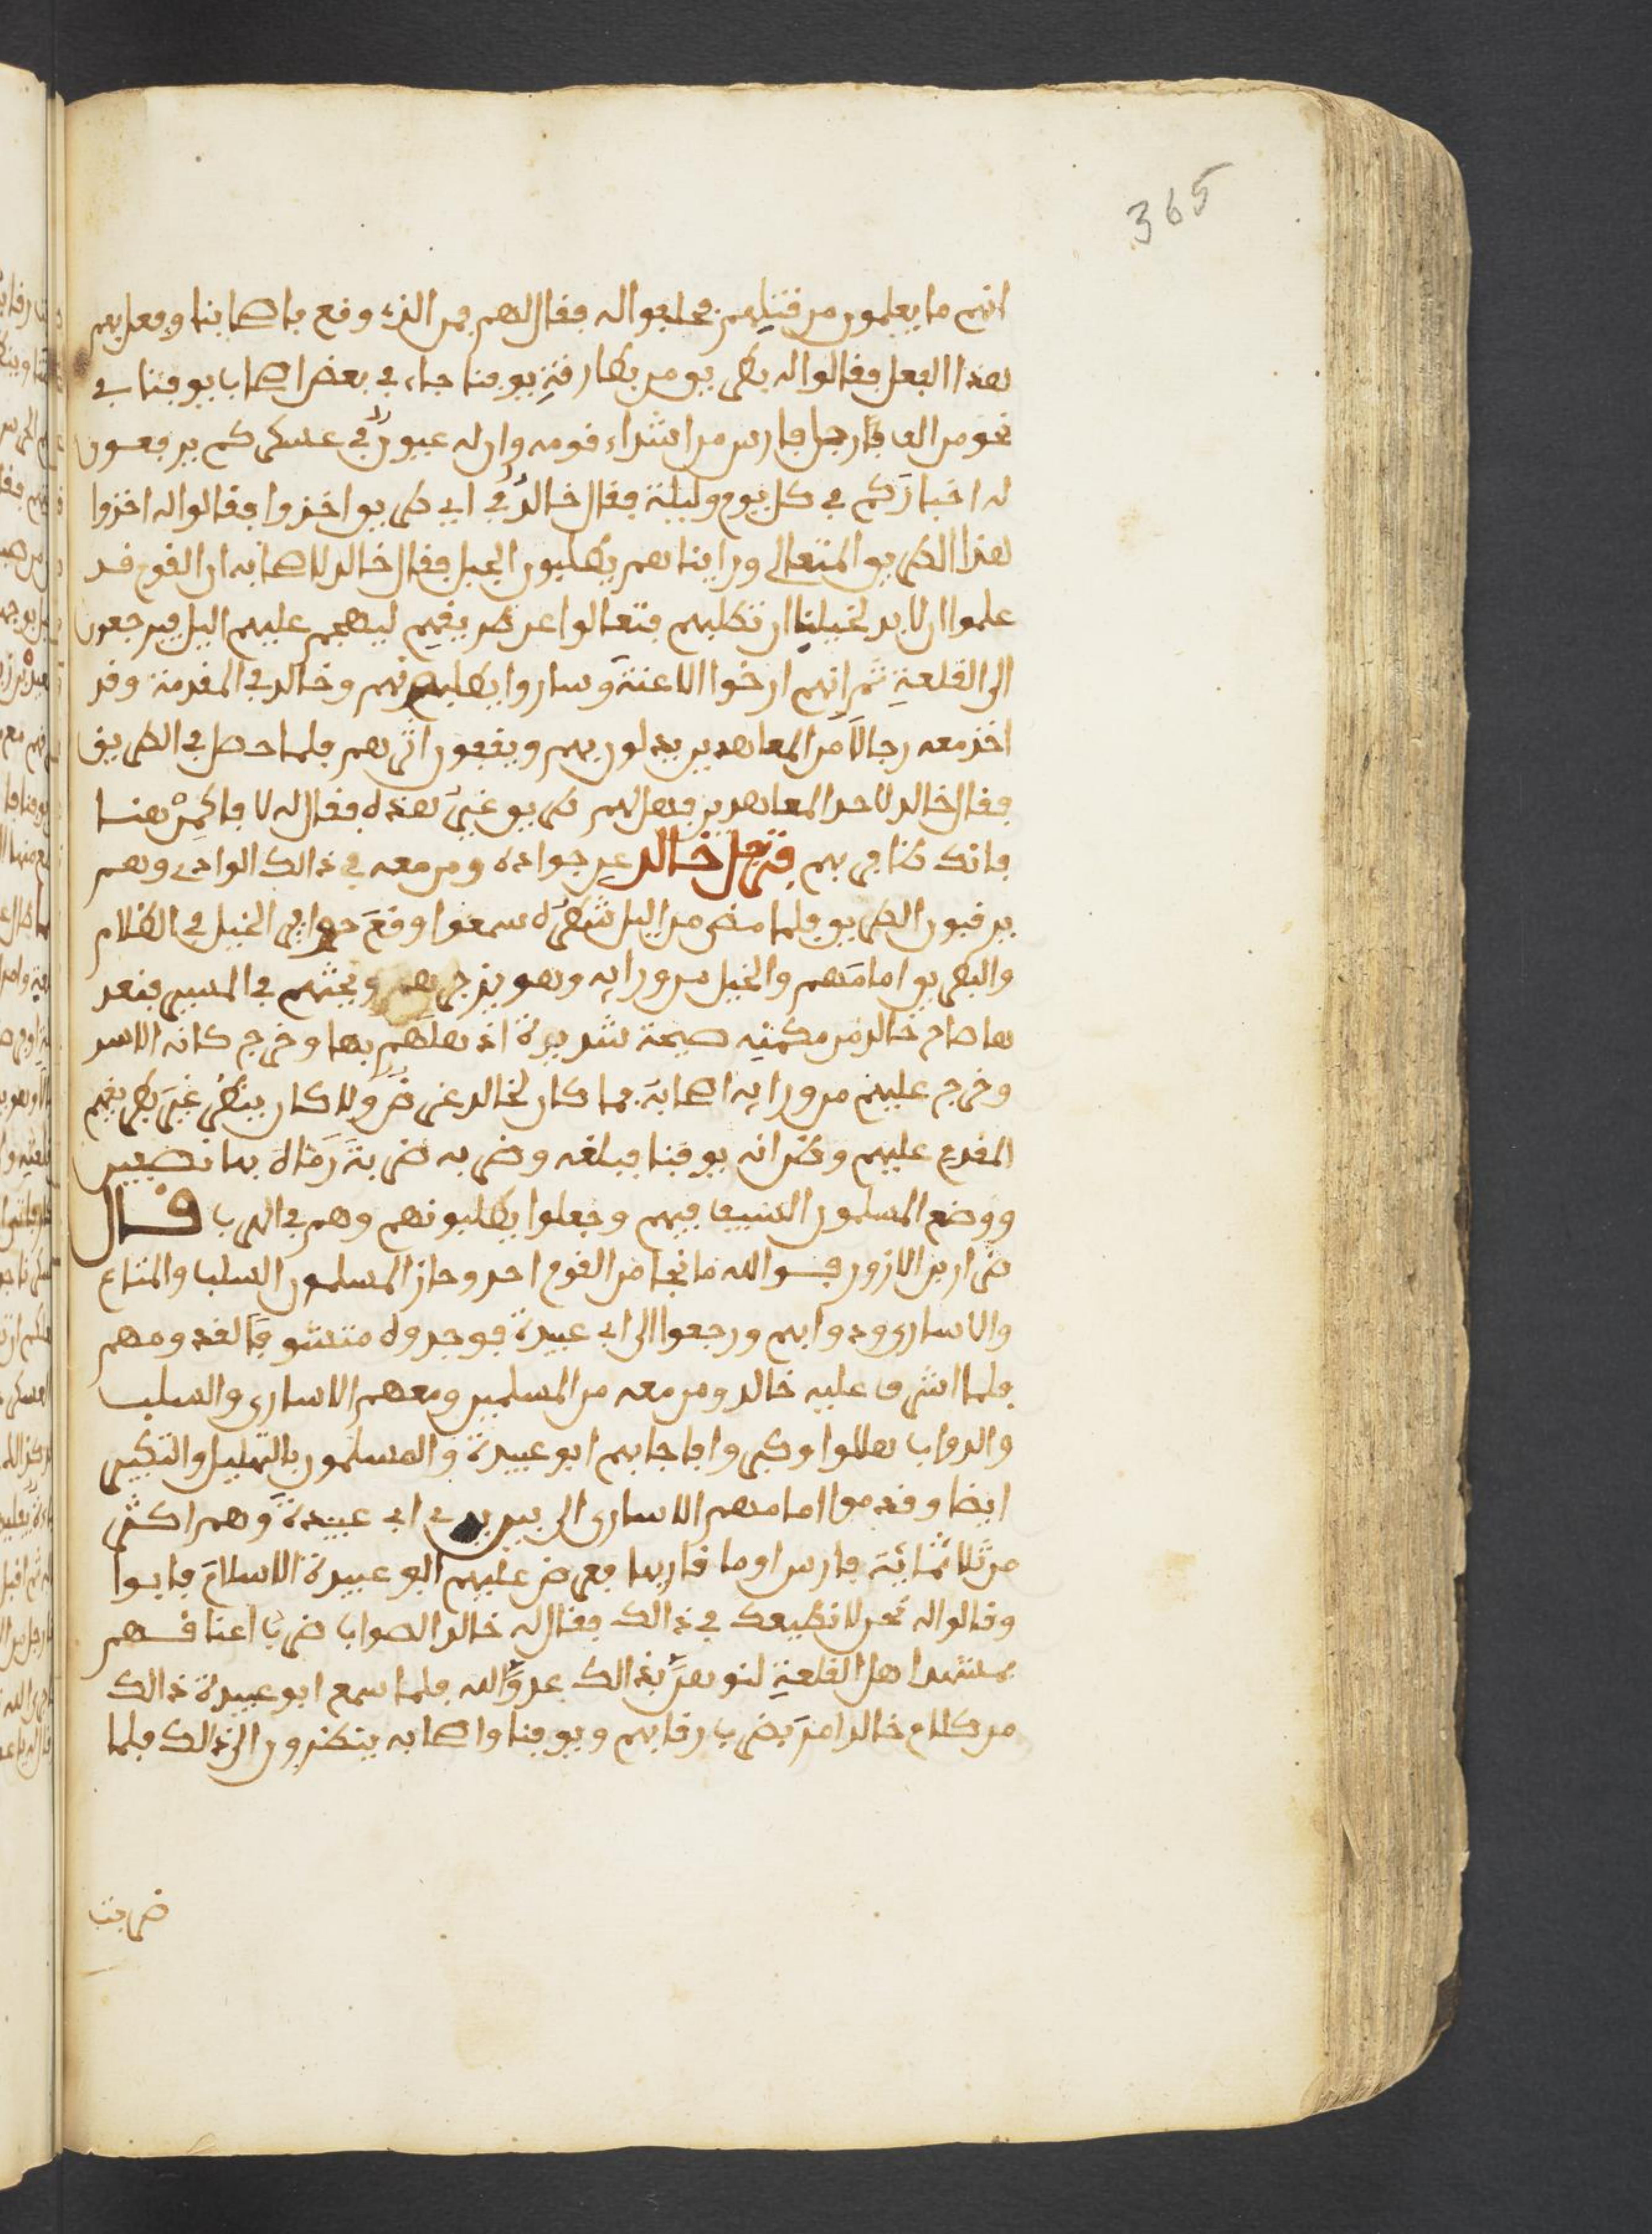 365
انهم ما يعلمون من قتلهم فحلفوا له فقال لهم فمن الذي وقع باصحابنا وفعل بهم
هذا الفعل فقالوا له بطريق من بطارقة يوقنا جاء في بعض اصحاب يوقنا في
نحو من الف فارس من اشداء قومه وان له عيون في عسكركم يرفعون
له اخباركم في كل يوم وليلة فقال خالد في اي طريق اخذوا فقالوا له اخذوا
هذا الطريق المتعالي وراينا هم يطلبون الجبل فقال خالد لاصحابه ان القوم قد
علموا ان لا بد لخيلنا ان تطلبهم فتعالوا عن طريقهم ليهجم عليهم اليل فيرجعون
الى القلعة ثم انهم ارخوا الاعنة وساروا يطلبونهم وخالد في المقدمة وقد
اخذ معه رجالا من المعاهدين يدلون بهم ويقفون اثرهم فلما حصل في الطريق
فقال خالد لاحد المعاهدين فهل لهم طريق غير هذه فقال له لا فاكمن هنا
فانك ظافر بهم فترجل خالد عن جواده ومن معه في ذالك الوادي وهم
يرقبون الطريق فلما مضى من اليل شطره سمعوا وقع حوافر الخيل في الظلام
والبطريق امامهم والخيل من ورايه وهو يزجرهم ويحثهم في المسير فعند
ها صاح خالد من مكمنه صيحة شديدة اذهلهم بها وخرج كانه الاسد
وخرج عليهم من ورايه اصحابه فما كان لخالد غرض ولا كان ينظر غير بطريقهم
المقدم عليهم وظن انه يوقنا فبلغه وضربه ضربة رماه بها نصفين
ووضع المسلمون السيف فيهم وجعلوا يطلبونهم وهم في الهرب قال
ضرار بن الازور فوالله ما نجا من القوم احد وحاز المسلمون السلب والمتاع
والاسارى ودوابهم ورجعوا الى ابي عبيدة فوجدوه متشوفا لقدومهم
فلما اشرف عليه خالد ومن معه من المسلمين ومعهم الاسارى والسلب
والدواب هللوا وكبروا فاجابهم ابو عبيدة والمسلمون بالتهليل والتكبير
ايضا وقدموا امامهم الاسارى الى بين يدي ابي عبيدة وهم اكثر
من ثلاثماية فارس او ما قاربها فعرض عليهم ابو عبيدة الاسلام فابوا
وقالوا له نحن لا نطيعك في ذالك فقال له خالد الصواب ضرب اعناقهم
بمشهد اهل القلعة لنوهن بذالك عدو الله فلما سمع ابو عبيدة ذالك
من كلام خالد امر بضرب رقابهم ويوقنا واصحابه ينظرون الى ذالك فلما
ضربت